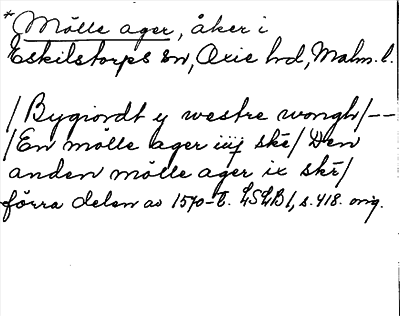 *Mölle ager, åker i
Eskilstorps sn, Oxie hd, Malm. l.
/Bygiordt y westre wongh/--
/En mölle ager iiij ske/Den
anden mölle ager ix ske/
förra delen av 1570-t. LSLB 1, s. 418. orig.